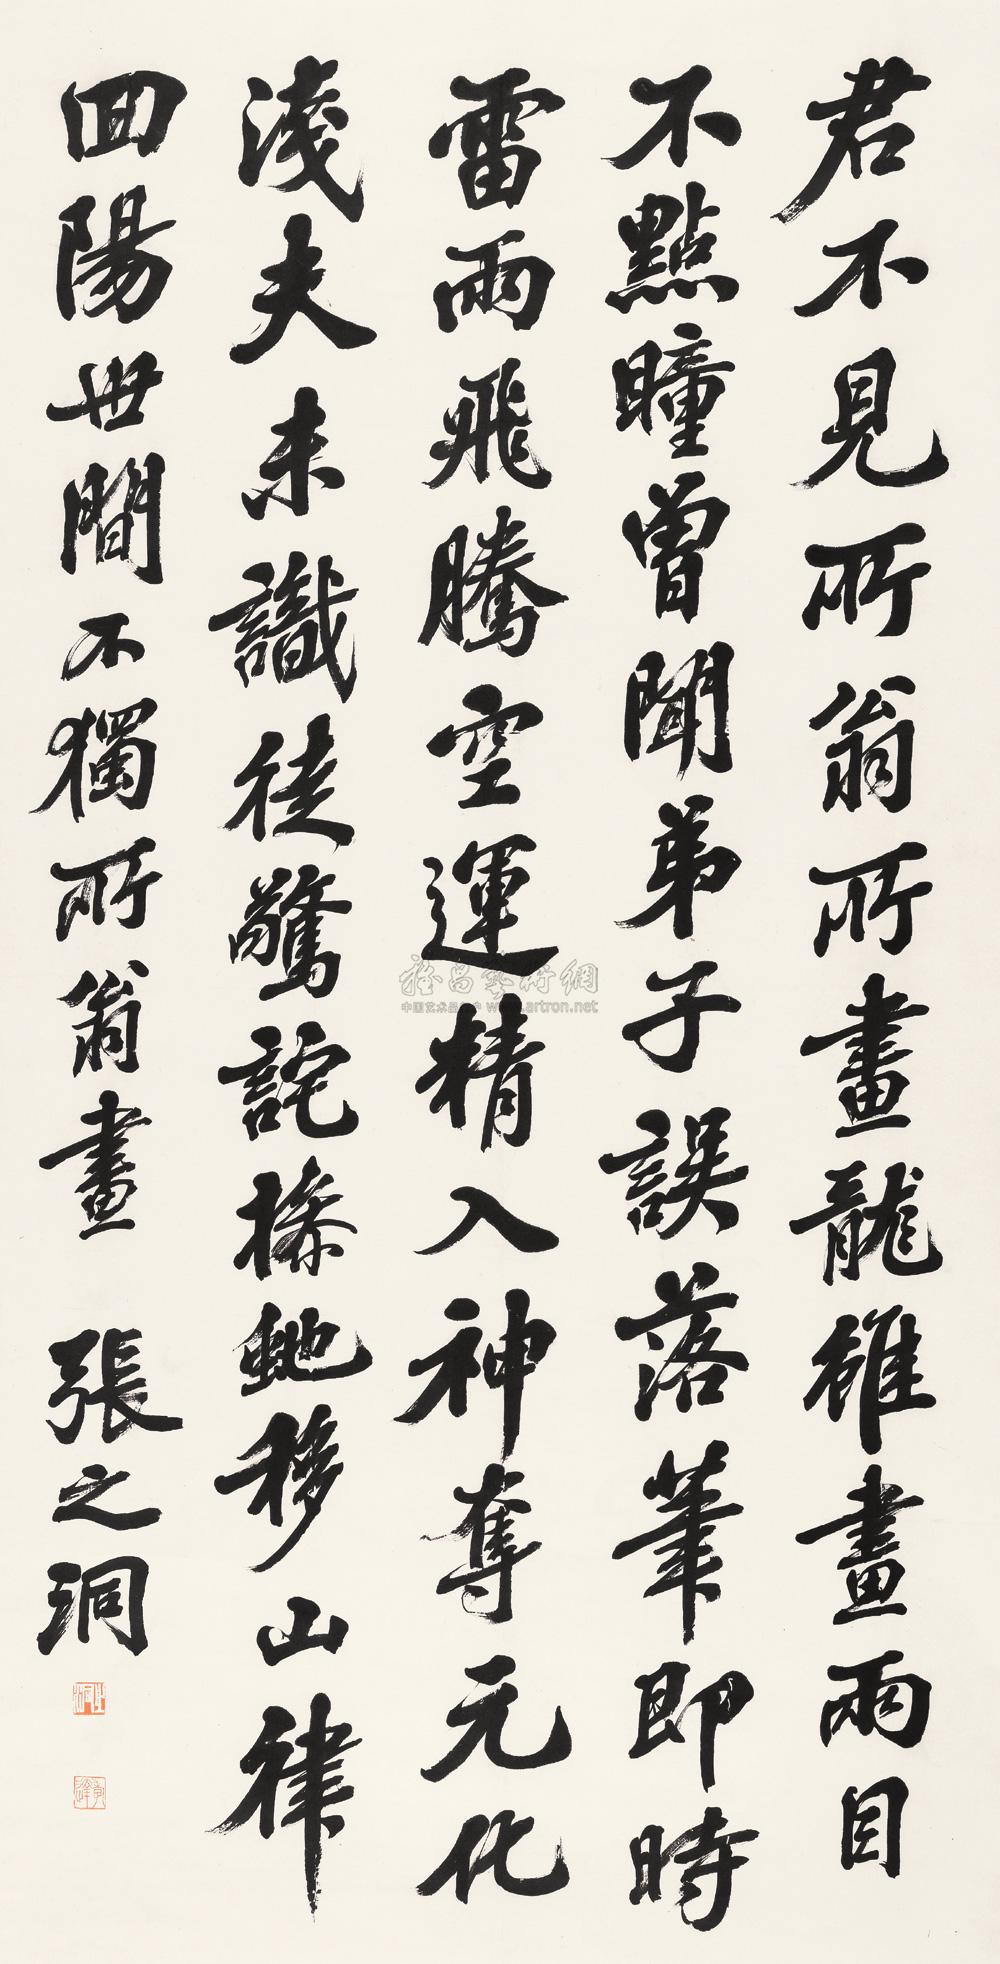 君不見所翁所畫龍雖畫兩目
不點瞳曾聞弟子誤落筆即時
雷雨飛騰空運精入神奪元化
淺夫未識徒驚詫操蛇移山律
回陽世間不獨所翁畫 張之洞
雅昌藝術網
中国艺术品门户 www.artron.net